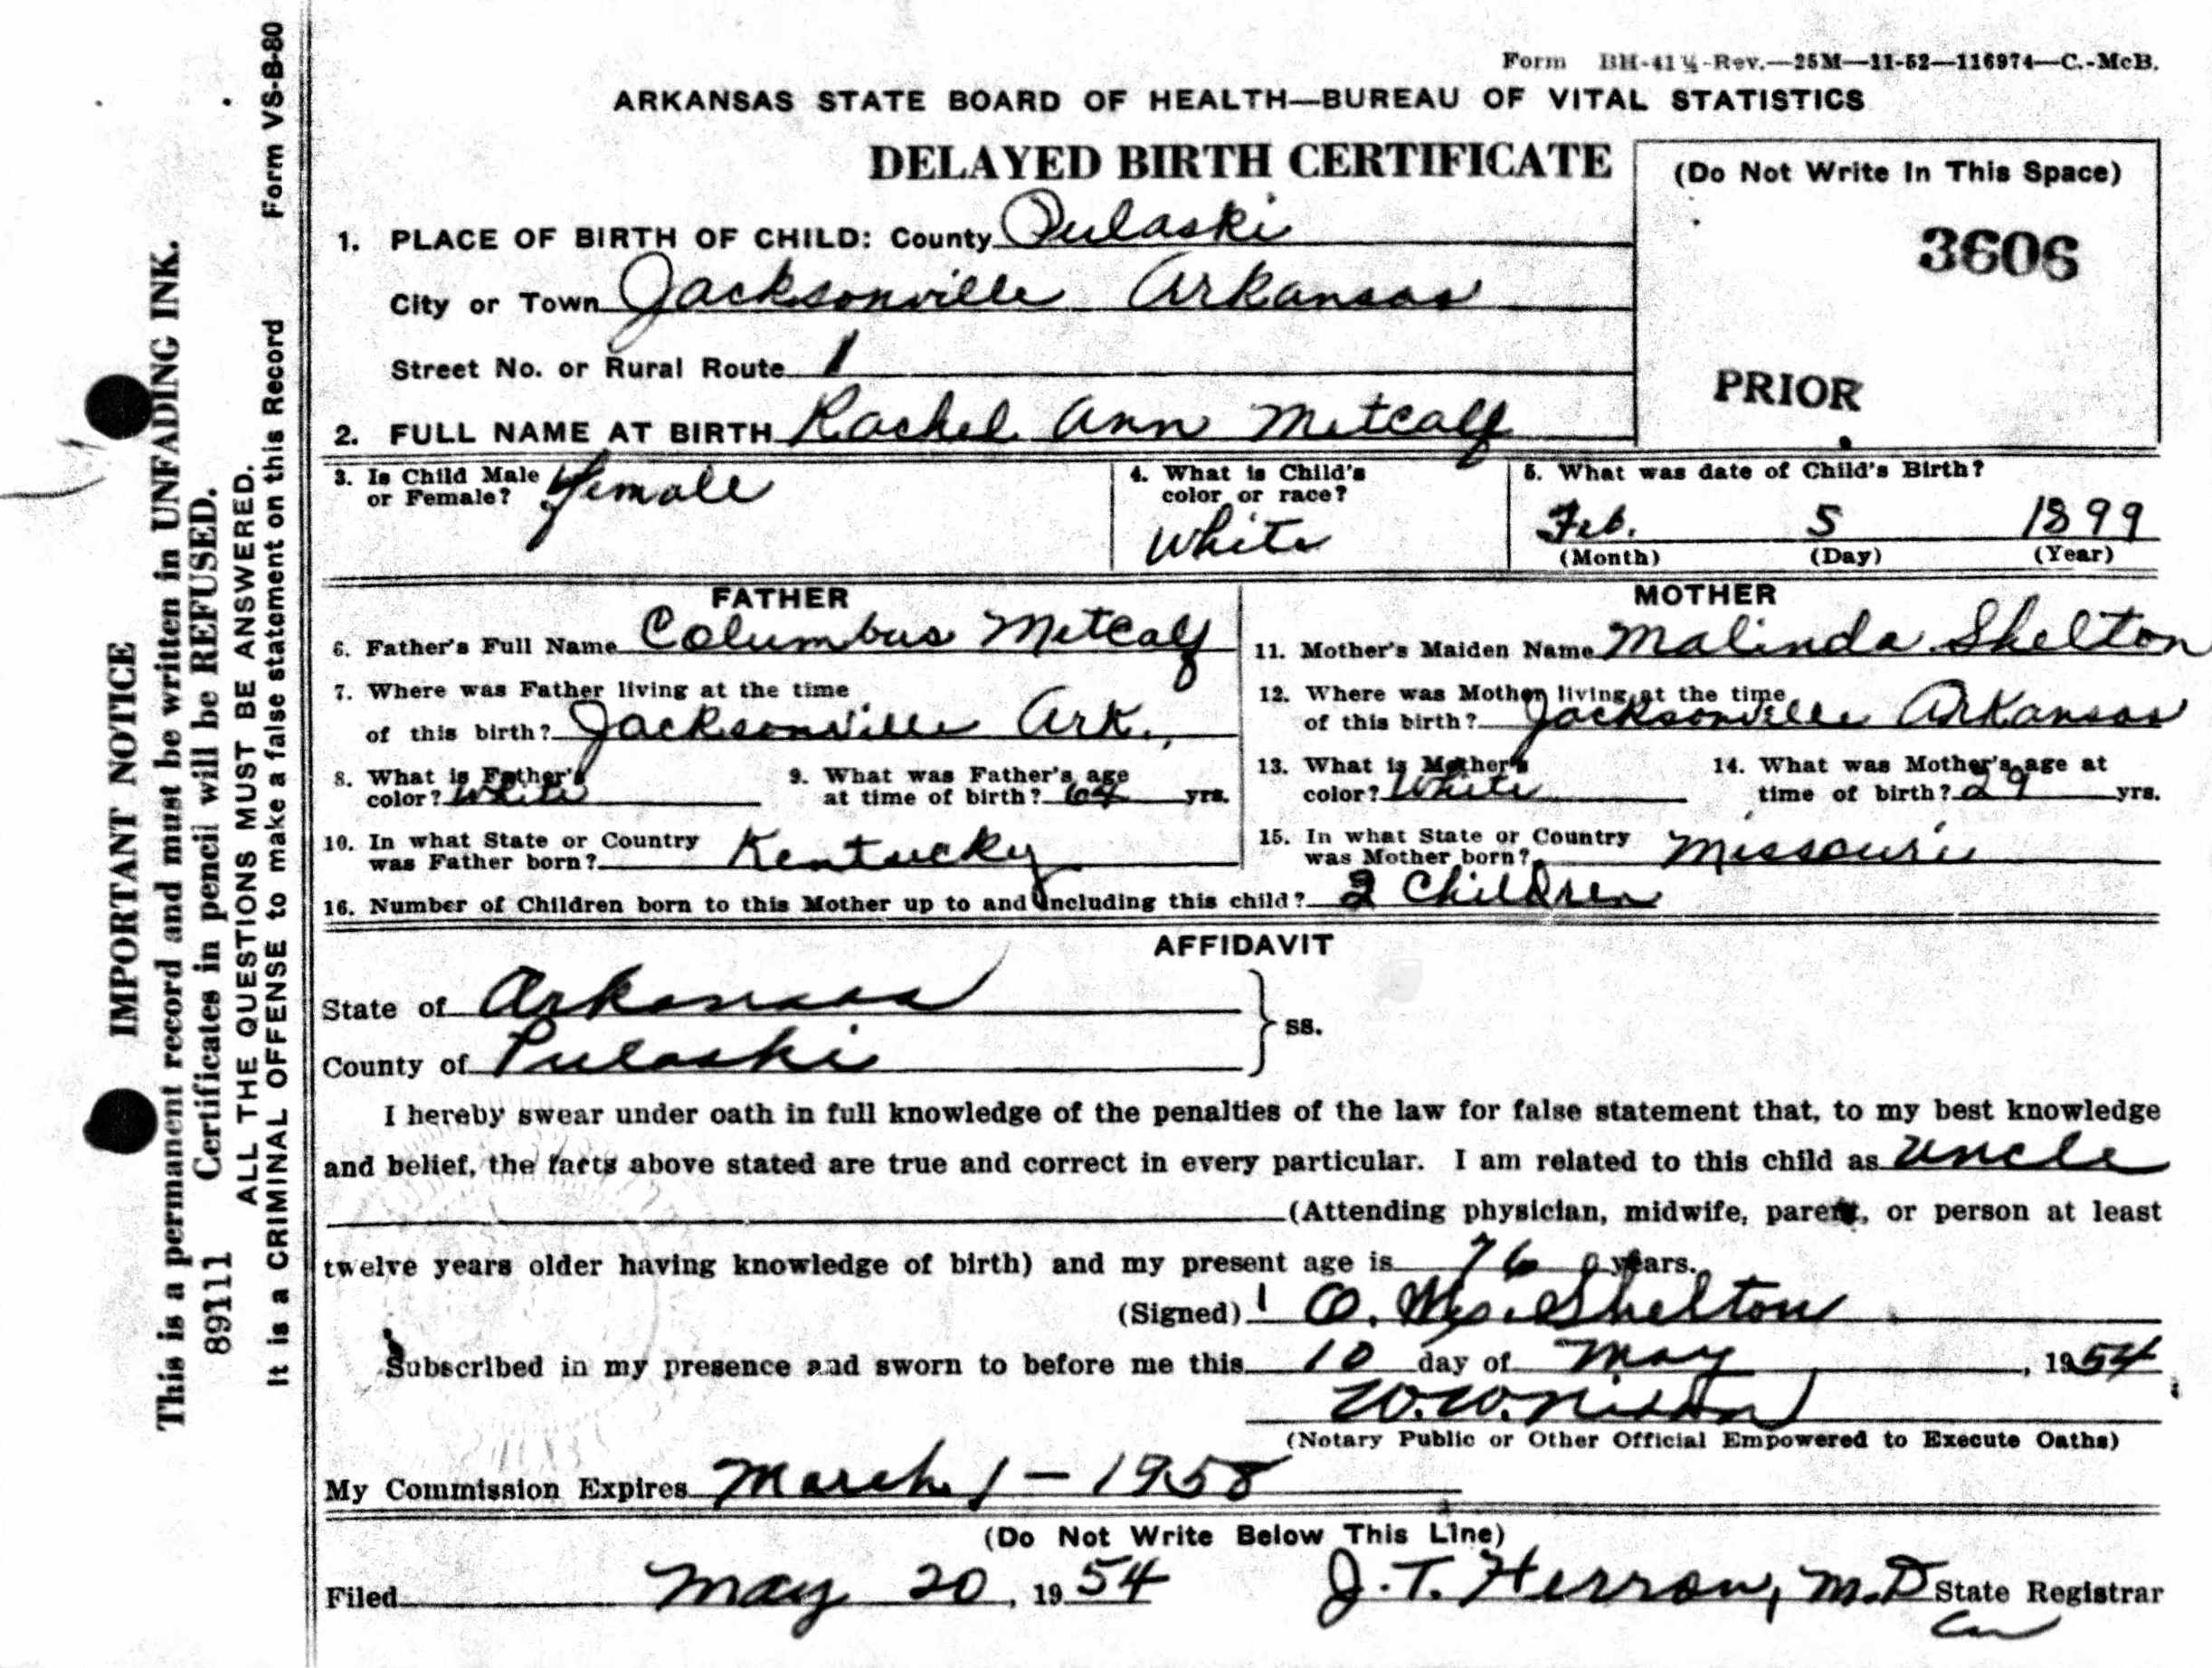 Form BH-41¼-Rev.—25M—11-52—116974—C.-McB.
ARKANSAS STATE BOARD OF HEALTH—BUREAU OF VITAL STATISTICS
DELAYED BIRTH CERTIFICATE
(Do Not Write In This Space)
3606
PRIOR
1. PLACE OF BIRTH OF CHILD: County Pulaski
City or Town Jacksonville Arkansas
Street No. or Rural Route 1
2. FULL NAME AT BIRTH Rachel Ann Metcalf
3. Is Child Male
or Female? Female
4. What is Child's
color or race?
White
5. What was date of Child's Birth?
Feb. 5 1899
(Month) (Day) (Year)
FATHER
6. Father's Full Name Columbus Metcalf
7. Where was Father living at the time
of this birth? Jacksonville Ark.,
8. What is Father's
color? White
9. What was Father's age
at time of birth? 64 yrs.
10. In what State or Country
was Father born? Kentucky
MOTHER
11. Mother's Maiden Name Malinda Shelton
12. Where was Mother living at the time
of this birth? Jacksonville Arkansas
13. What is Mother's
color? White
14. What was Mother's age at
time of birth? 29 yrs.
15. In what State or Country
was Mother born? Missouri
16. Number of Children born to this Mother up to and including this child? 2 Children
AFFIDAVIT
State of Arkansas
County of Pulaski
ss.
I hereby swear under oath in full knowledge of the penalties of the law for false statement that, to my best knowledge
and belief, the facts above stated are true and correct in every particular. I am related to this child as Uncle
(Attending physician, midwife, parent, or person at least
twelve years older having knowledge of birth) and my present age is 76 years.
(Signed) O. Shelton
Subscribed in my presence and sworn to before me this 10 day of May, 1954
W.W. Nixon
(Notary Public or Other Official Empowered to Execute Oaths)
My Commission Expires March 1 - 1958
(Do Not Write Below This Line)
Filed May 20, 1954 J.T. Herron, M.D State Registrar
IMPORTANT NOTICE
This is a permanent record and must be written in UNFADING INK.
89111 Certificates in pencil will be REFUSED.
ALL THE QUESTIONS MUST BE ANSWERED.
It is a CRIMINAL OFFENSE to make a false statement on this Record Form VS-B-80